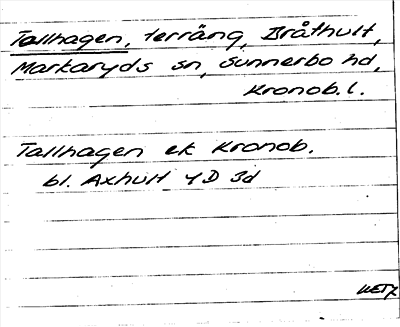 Tallhagen, terräng, Bråthult,
Markaryds sn, Sunnerbo hd,
Kronob. l.
Tallhagen ek Kronob.
bl. Axhult 4D 3d